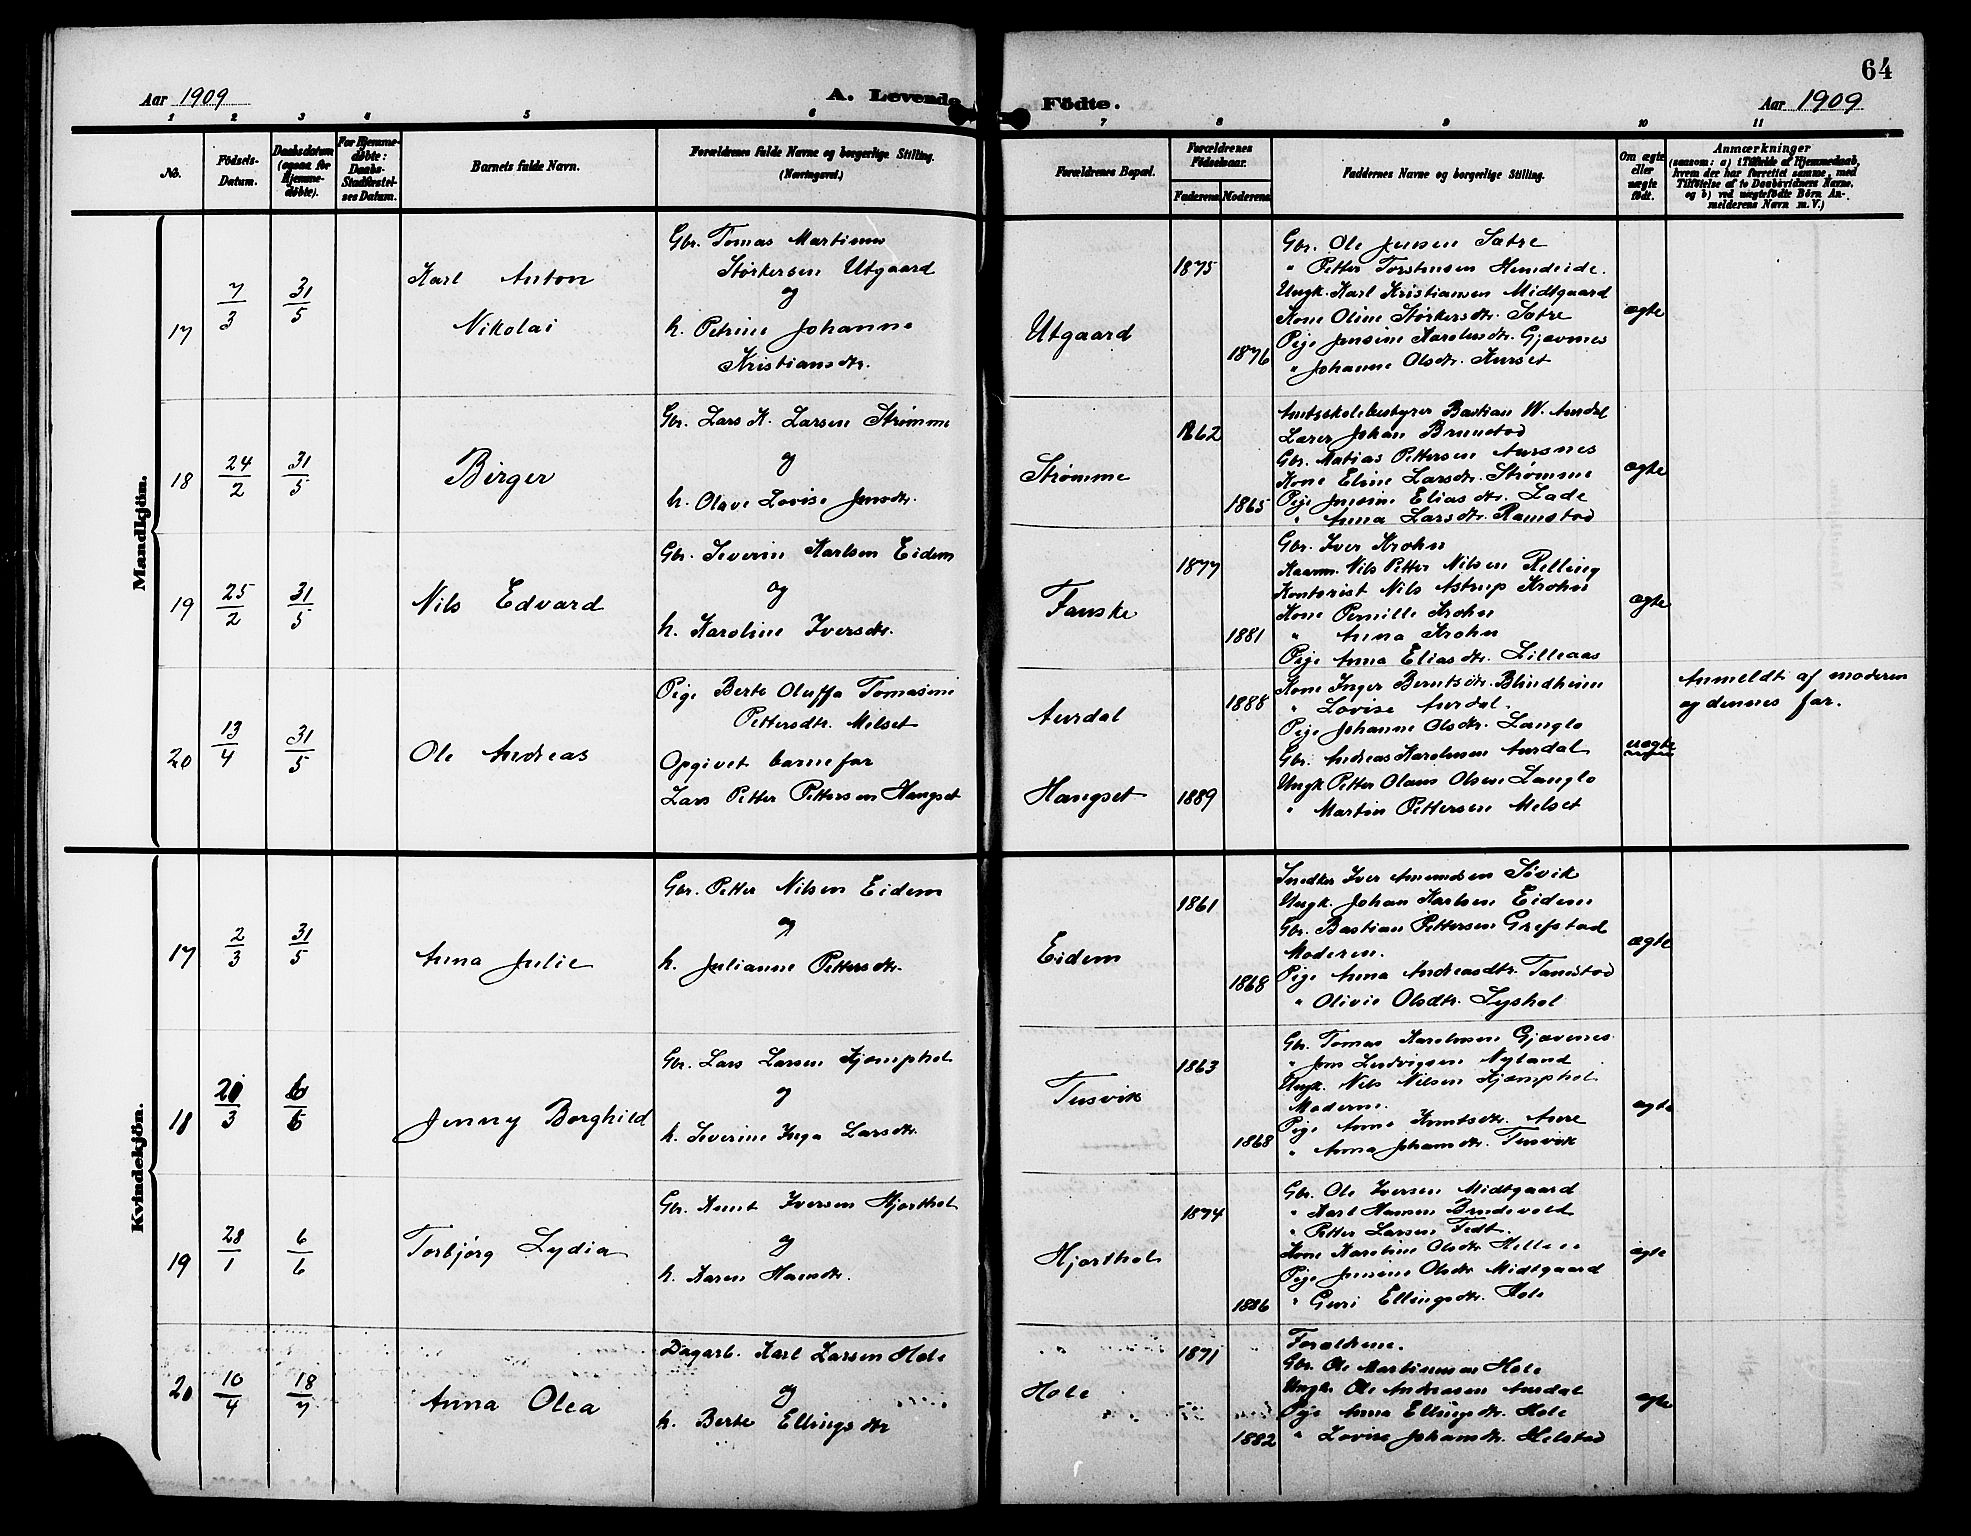 64
Aar 1909
A. Levende Födte.
Aar 1909
1 2 3 4 5 6 7 8 9 10 11
No.
Födsels-Datum.
Daabsdatum (ogsaa for Hjemme-døbte).
For Hjemme-døbte: Daabs-Stadfæstel-ses Datum.
Barnets fulde Navn.
Forældrenes fulde Navne og borgerlige Stilling. (Næringsvei.)
Forældrenes Bopæl.
Forældrenes Födselsaar.
Faderens Moderens
Faddernes Navne og borgerlige Stilling.
Om ægte eller uægte födt.
Anmærkninger
(saasom: a) i Tilfælde af Hjemmedaab,
hvem der har forrettet samme, med
Tilföielse af to Daabsvidners Navne,
og b) ved uægtefödte Börn An-
melderens Navn m. V.)
Mandkjön.
17
7/3
31/5
Karl Anton
Nikolai
Gbr. Tomas Martinus
Størkersen Utgaard
og
h. Petrine Johanne
Kristiansdtr.
Utgaard
1875
1876
Gbr. Ole Jensen Sætre
" Petter Torstensen Hundeide.
Ungk. Karl Kristiansen Midtgaard
Kone Oline Størkersdtr. Sætre
Pige Jensine Karolusdtr. Gjævnes
" Johanne Olsdtr. Kurset
ægte
18
24/2
31/5
Birger
Gbr. Lars K. Larsen Strømme
og
h. Olave Lovise Jensdtr.
Strømme
1862
1865
Amtsskolebestyrer Bastian W. Aurdal
Lærer Johan Brunstad
Gbr. Matias Pettersen Aursnes
Kone Eline Larsdtr. Strømme
Pige Jensine Eliasdtr. Lade
" Anna Larsdtr. Ramstad
ægte
19
25/2
31/5
Nils Edvard
Gbr. Severin Karlsen Eidem
og
h. Karoline Iversdtr.
Fauske
1877
1881
Gbr. Iver Krohn
Kaarm. Nils Petter Nilsen Relling
Kontorist Nils Astrup Krohn
Kone Pernille Krohn
" Anna Krohn
Pige Anna Eliasdtr. Lilleaas
ægte
20
13/4
31/5
Ole Andreas
Pige Berte Oluffa Tomasine
Pettersdtr. Melset
Opgivet barnefar
Lars Petter Pettersen Hangset
Aurdal
Hangset
1888
1889
Kone Inger Berntsdtr. Blindheim
" Lovise Aurdal.
Pige Johanne Olsdtr. Langlo
Gbr. Andreas Karolusen Aurdal
Ungk Petter Olaus Olsen Langlo
" Martin Pettersen Melset
uægte
Anmeldt af moderen
og dennes far.
Kvindekjön.
17
2/3
31/5
Anna Julie
Gbr. Petter Nilsen Eidem
og
h. Julianne Pettersdtr.
Eidem
1861
1868
Snedker Iver Amundsen Søvik
Ungk. Johan Karlsen Eidem
Gbr. Bastian Pettersen Grefstad
Moderen.
Pige Anna Andreasdtr. Tandstad
" Olivie Olsdtr. Lyshol
ægte
18
/3
6/6
Jenny Borghild
Gbr. Lars Larsen Kjemphol
og
h. Severine Inga Larsdtr.
Tusvik
1863
1868
Gbr. Tomas Karolusen Gjævenes
" Jon Ludvigsen Nyland
Ungk. Nils Nilsen Kjæmphol
Moderen.
Pige Anne Knutsdtr. Aure
" Anna Johansdtr. Tusvik
ægte
19
28/1
6/6
Torbjørg Lydia
Gbr. Knut Iversen Hjorthol
og
h. Karen Hansdtr.
Hjorthol
1874
1886
Gbr. Ole Iversen Midtgaard
" Karl Hansen Brudevold
" Petter Larsen Tedt.
Kone Karoline Olsdtr. Hellen
Pige Jensine Olsdtr Midtgaard
" Guri Ellingsdtr. Hole
ægte
20
10/4
18/7
Anna Olea
Dagarb. Karl Larsen Hole
og
h. Berte Ellingsdtr
Hole
1871
1882
Forældrene.
Gbr. Ole Martinussen Hole
Ungk. Ole Andreasen Aurdal
Pige Anna Ellingsdtr. Hole
" Lovise Johansdtr. Helstad
ægte